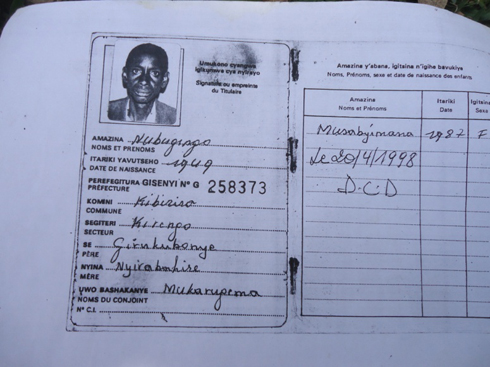 Umukono cyangwa
igikumwe cya nyirayo
Signature ou empreinte
du Titulaire
AMAZINA Nubugingo
NOMS ET PRENOMS
ITARIKI YAVUTSEHO 1949
DATE DE NAISSANCE
PEREFEGITURA GISENYI N° G 258373
PRÉFECTURE
KOMINI Kibirira
COMMUNE
SEGITERI Kirengo
SECTEUR
SE Girukubonye
PÈRE
NYINA Nyirabahire
MÈRE
UWO BASHAKANYE Mukarugema
NOMS DU CONJOINT
N° C.I.
Amazina y'abana, igitsina n'igihe bavukiye
Noms, Prénoms, sexe et date de naissance des enfants
Amazina Itariki Igitsina
Noms et Prénoms Date Sexe
Musabyimana 1987 F
Le 20/4/1998
D.C.D